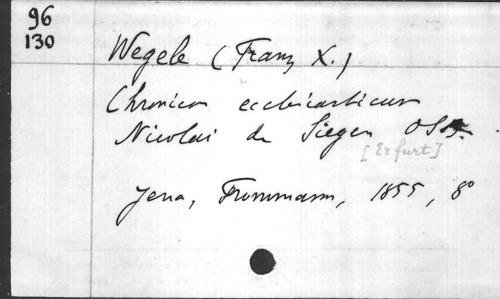 96
130
Wegele (Franz X.)
Chronicon ecclesiasticum
Nicolai de Siegen OSB.
[Erfurt]
Jena, Frommann, 1855, 8°